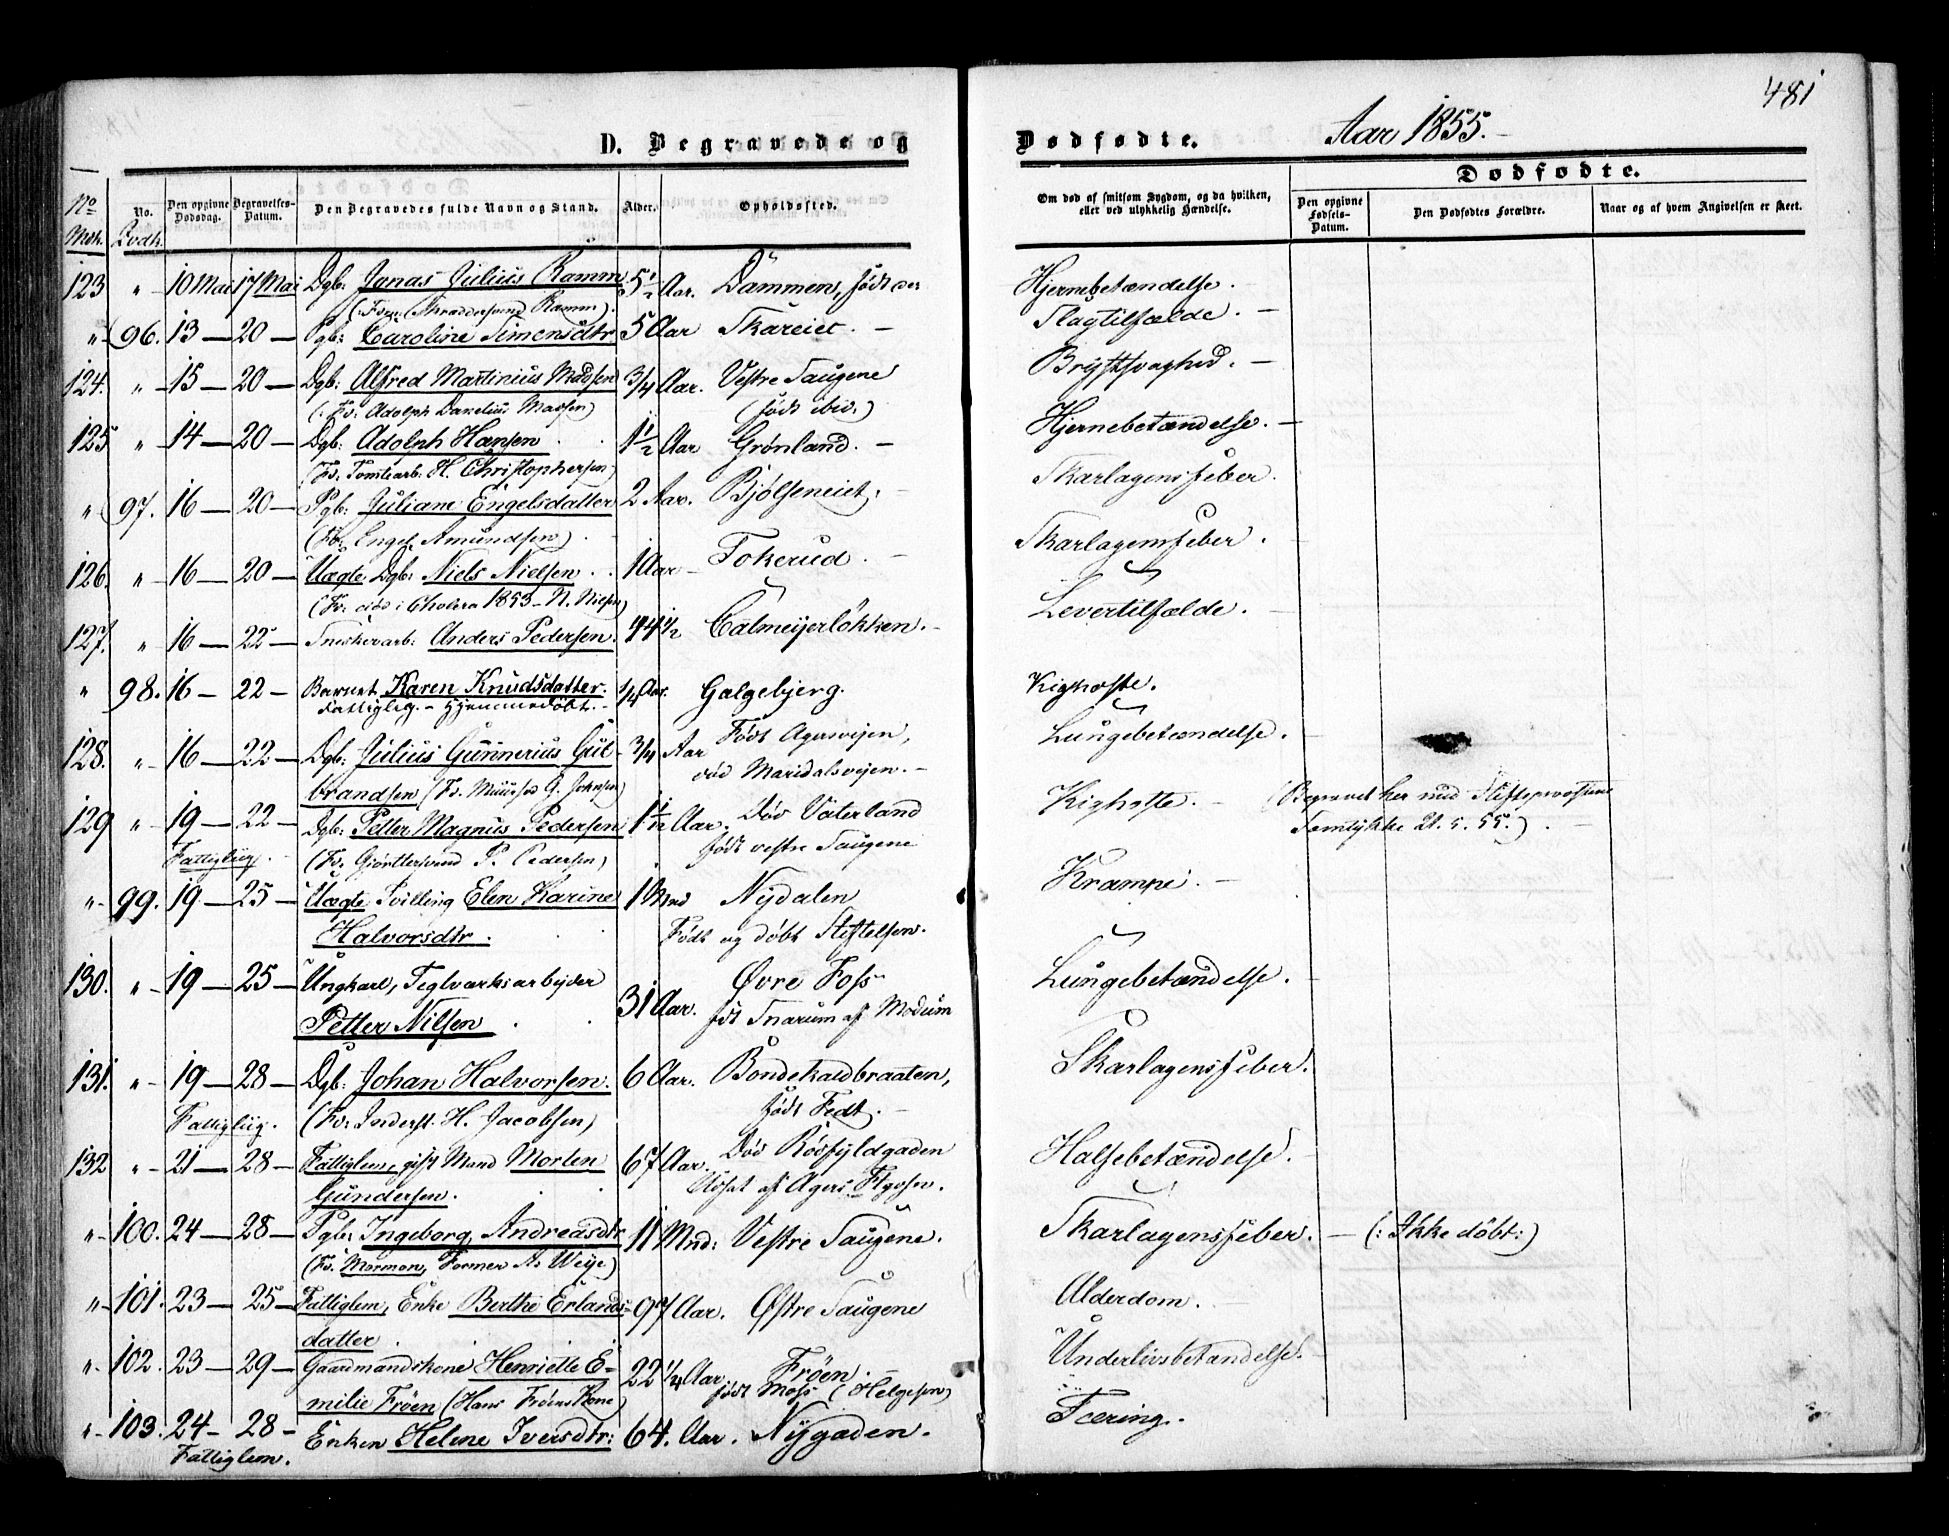 481
D. Begravede og
Dødfødte.
Aar 1855.
Dødfødte.
No Mdk.
No. Qvdk.
Den opgivne Dødsdag.
Begravelses-Datum.
Den Begravedes fulde Navn og Stand.
Alder.
Opholdssted.
Om død af smitsom Sygdom, og da hvilken, eller ved ulykkelig Hændelse.
Den opgivne Fødsels-Datum.
Den Dødfødtes Forældre.
Naar og af hvem Angivelsen er skeet.
123 " 10 Mai 17 Mai Dgb: Jonas Julius Ramm 5½ Aar. Dammen, født Hjernebetændelse.
(: Fv: Skræddersvend Ramm).
" 96. 13 — 20 — Pgb: Caroline Simensdtr 5 Aar Skareiet. — Slagtilfælde. —
124. " 15 — 20 — Dgb: Alfred Martinius Madsen ¾ Aar. Vestre Saugene Brystsvaghed. —
(: Fv: Adolph Danelius Madsen) (født ibid.)
125 " 14 — 20 — Dgb: Adolph Hansen 1½ Aar Grønland. — Hjernebetændelse. —
(Fv: Tomtearb: H. Christophersen)
" 97. 16 — 20 — Pgb: Juliane Engelsdatter 2 Aar. Bjølseneiet. Skarlagensfeber.
(Fv: Engel Amundsen)
126. " 16 — 20 — Uægte Dgb: Niels Nielsen 1 Aar — Tokerud. Skarlagensfeber.
(Fv: død i Cholera 1853 — N. Nielsen)
127. " 16 — 22 — Snedkerarb: Anders Pedersen 44½ Calmeijerløkken. — Levertilfælde.
" 98. 16 — 22 — Barnet Karen Knudsdatter. ¼ Aar. Galgebjerg. Kighoste.
Fattiglig. — Hjemmedøbt. —
128. " 16 — 22 — Dgb: Julius Gunnerius Gul- ¾ Aar Født Agersvejen, Lungebetændelse.
brandsen (Fv. G. Johnsen) død Maridalsvejen. —
129 " 19 — 22 — Dgb: Petter Magnus Pedersen 1 1/12 Aar. Død Vaterland Kighoste. — (Begravet her med Stiftsprovstens
Fattiglig. (Fv. Gjørtlersvend P. Pedersen) født vestre Saugene Samtykke 21. 5. 55.)
" 99. 19 — 25 — Uægte Tvilling Elen Karine 1 Mnd Nydalen Krampe. —
Halvorsdtr. Født og døbt Stiftelsen.
130. " 19 — 25 — Ungkarl, Teglværksarbejder 31 Aar. Øvre Foss Lungebetændelse.
Petter Nilsen fdt Snarum af Modum
131. " 19 — 28 — Dgb: Johan Halvorsen. 6 Aar. Bondekaldbraaten, Skarlagensfeber.
Fattiglig. (Fv: Inderst. H. Jacobsen) født Fedt. —
132 " 21 — 28 — Fattiglem, gift Mand Morten 67 Aar. Død Røsfyldgaden Halsebetændelse.
Gundersen. Udsat af Agers
" 100. 24 — 28 — Pgb: Ingeborg Andreasdtr 11 Mnd: Vestre Saugene. Skarlagensfeber. — (: Ikke døbt:)
(Fv. Mormon, Former A. Weije)
" 101. 23 — 25 — Fattiglem, Enke Berthe Erlands- 97 Aar. Østre Saugene Alderdom.
datter
" 102. 23 — 29 — Gaardmandskone Henriette E- 22¼ Aar. Frøen. — Underlivsbetændelse.
milie Frøen (Hans Frøens Kone) født Moss (Helgesen)
" 103. 24 — 28 — Enken Helene Iversdtr: 64. Aar. Nygaden. Tæring.
Fattiglem.